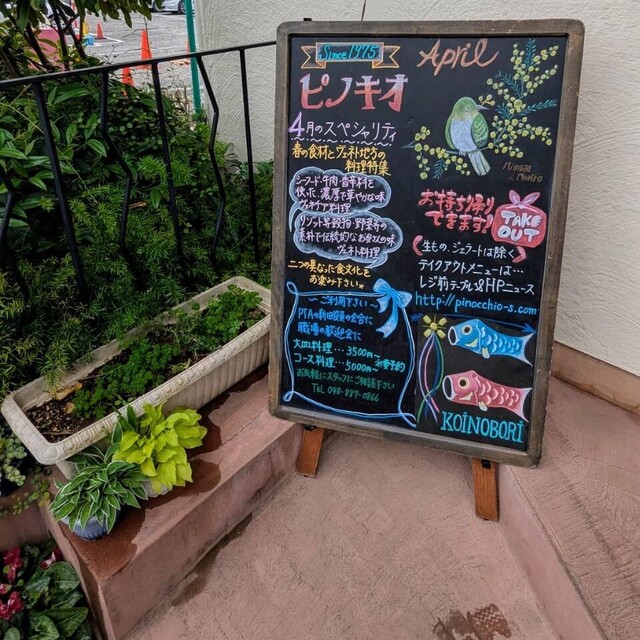 Since 1975
ピノキオ
4月のスペシャリティ
春の食材とヴェネト地方の
料理特集
シーフード・牛肉・香辛料を
使って、濃厚で華やかな味
ヴェネチア料理
リゾットや穀物・野菜等の
素朴で伝統的なお楽しみの味
ヴェネト料理
二つの異なった食文化を
お楽み下さい。
〜ご利用下さい〜
PTAの新旧役員の会合に
職場の歓迎会に
大皿料理…3500円〜
コース料理…5000円〜
要予約
お気軽にスタッフにご相談下さい
Tel 048-837-0866
April
Mimosa
Mejiro
お持ち帰り
できます!
TAKE
OUT
生もの、ジェラートは除く
テイクアウトメニューは…
レジ前テーブル&HPニュース
http://pinocchio-s.com
KOINOBORI